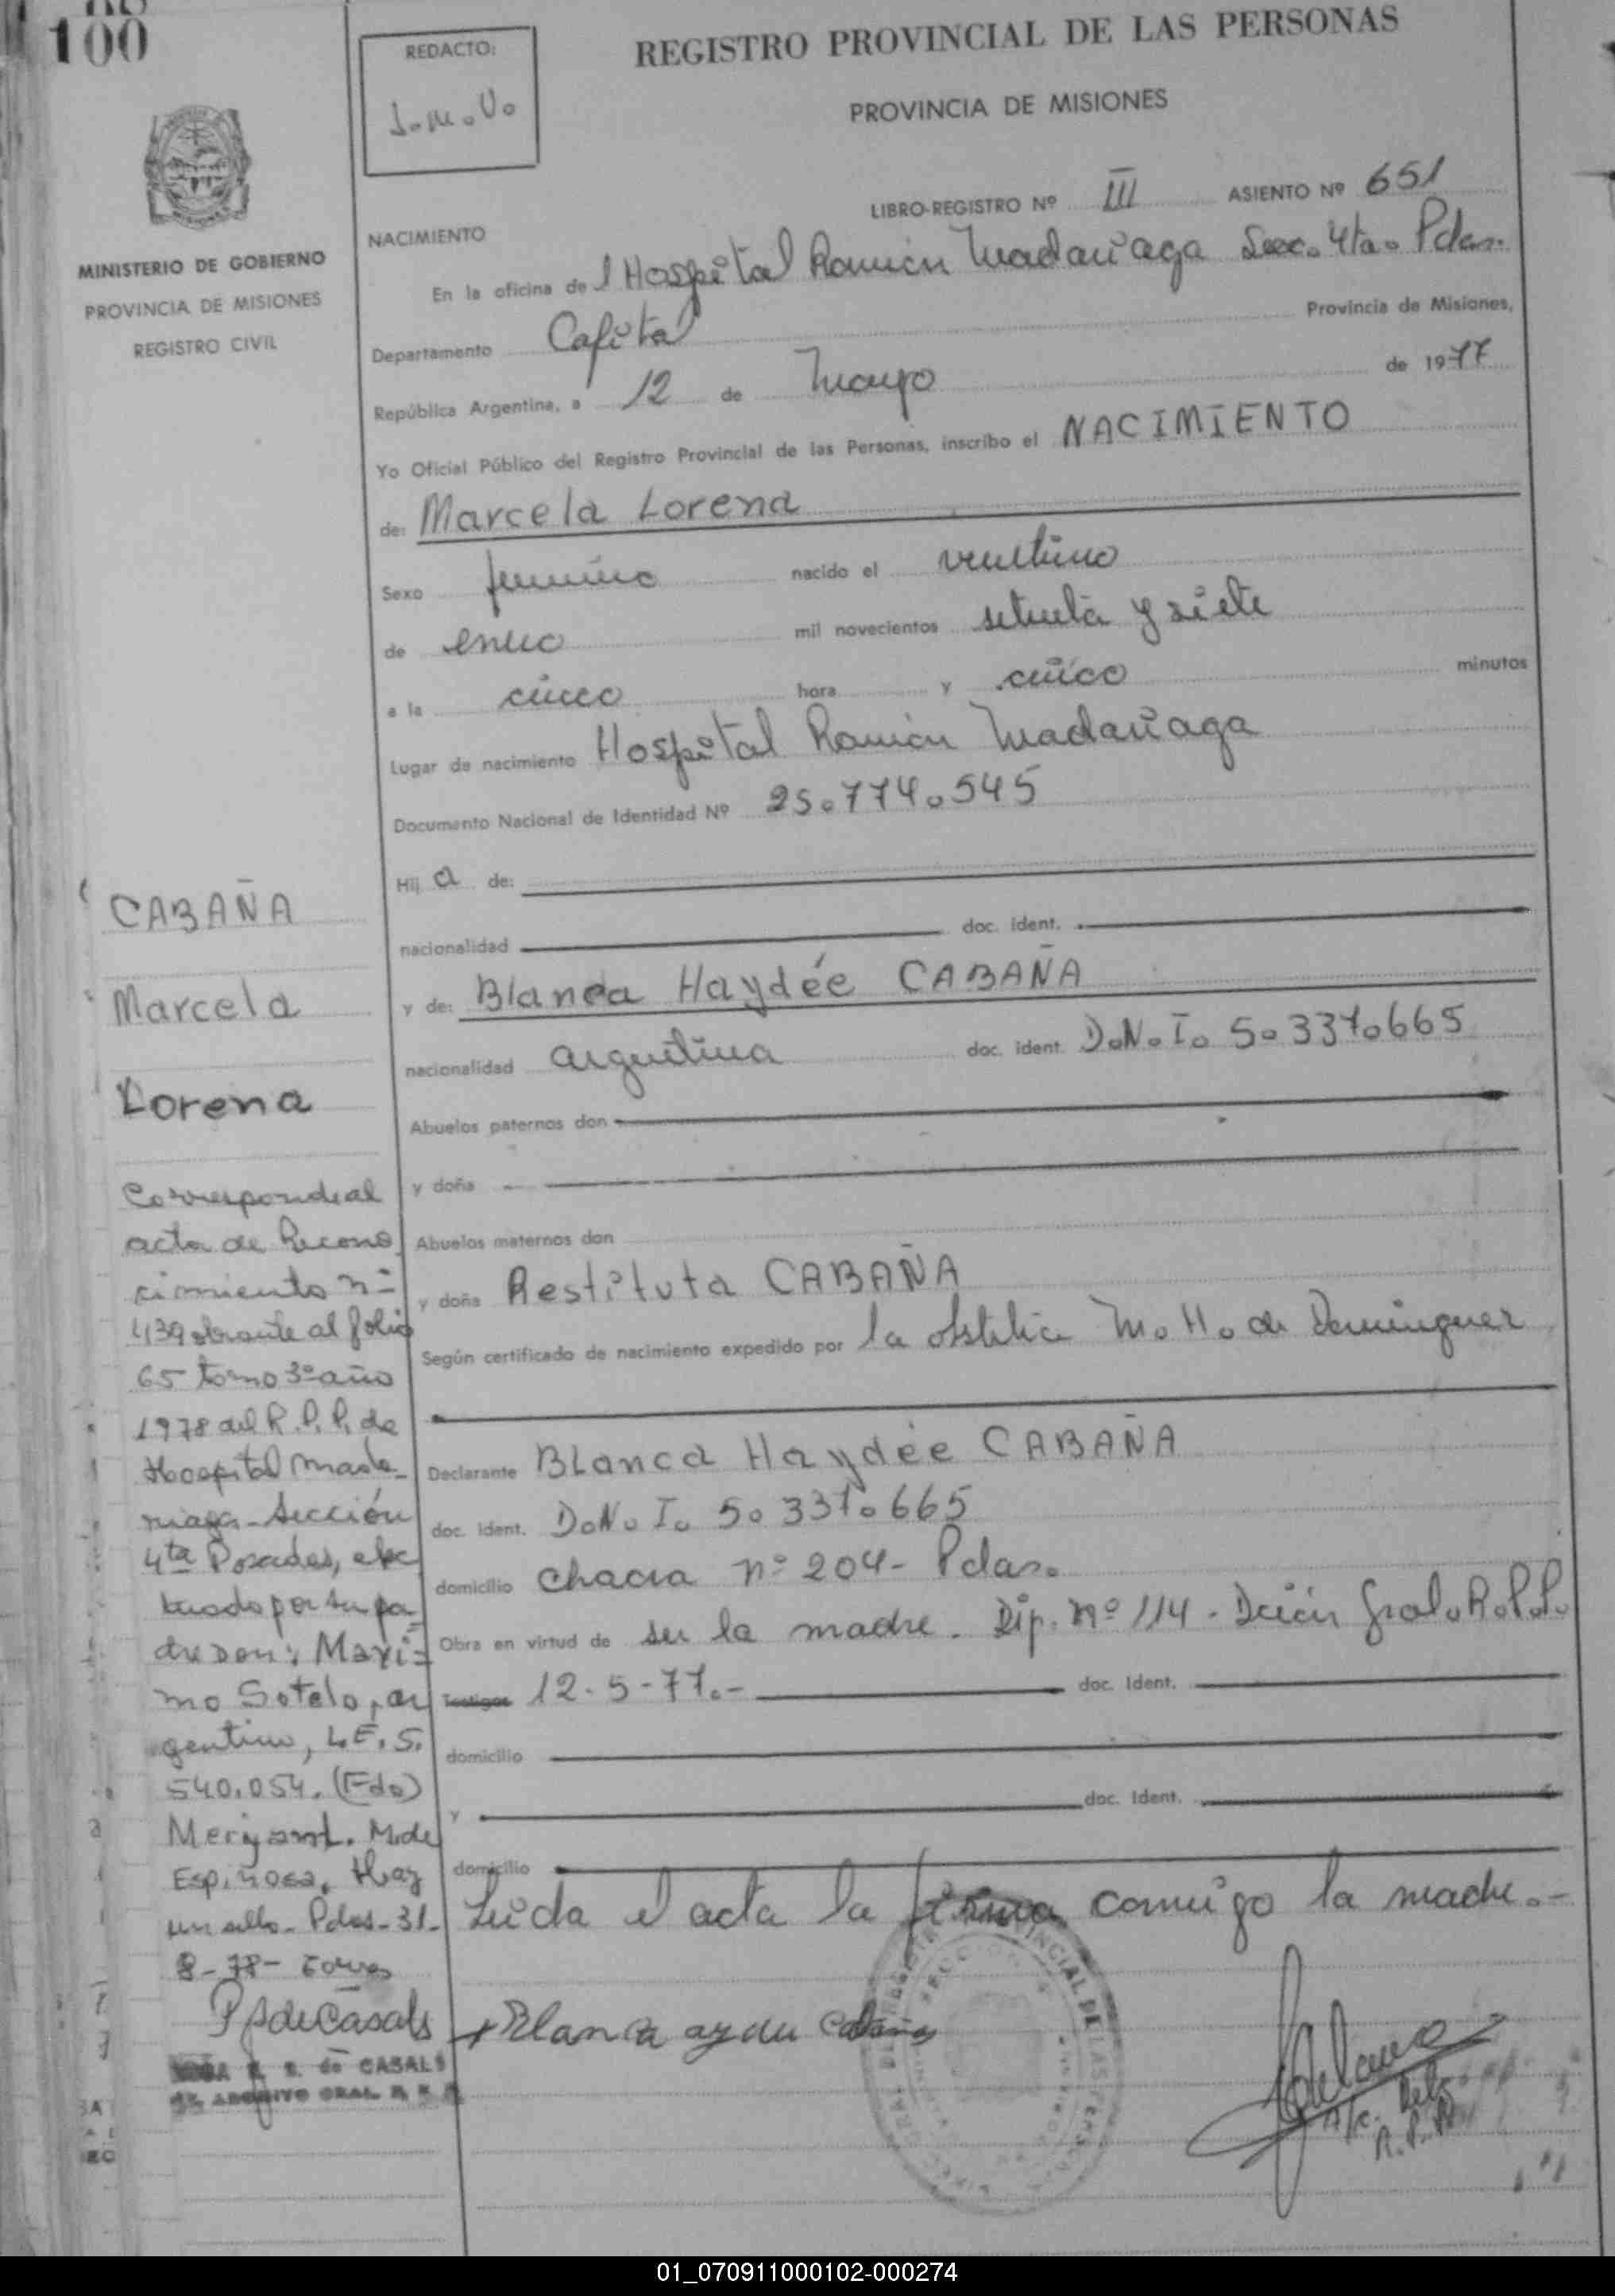 100
REDACTO:
J.M.V.
REGISTRO PROVINCIAL DE LAS PERSONAS
PROVINCIA DE MISIONES
LIBRO-REGISTRO Nº III ASIENTO Nº 651
MINISTERIO DE GOBIERNO
PROVINCIA DE MISIONES
REGISTRO CIVIL
NACIMIENTO
En la oficina del Hospital Ramón Madariaga Secc. 4ta. Pdas.
Departamento Capital Provincia de Misiones,
República Argentina, a 12 de Mayo de 1977
Yo Oficial Público del Registro Provincial de las Personas, inscribo el NACIMIENTO
de: Marcela Lorena
Sexo femenino nacido el veintiuno
de enero mil novecientos setenta y siete
a la cinco hora y cinco minutos
Lugar de nacimiento Hospital Ramón Madariaga
Documento Nacional de Identidad Nº 25.774.545
Hij a de:
nacionalidad doc. ident.
y de: Blanca Haydée CABAÑA
nacionalidad argentina doc. ident. D.N.I. 5.337.665
Abuelos paternos don
y doña
Abuelos maternos don
y doña Restituta CABAÑA
Según certificado de nacimiento expedido por la obstetrica M. H. de Dominguez
Declarante Blanca Haydée CABAÑA
doc. ident. D.N.I. 5.337.665
domicilio chacra nº 204- Pdas.
Obra en virtud de ser la madre. Dip. Nº 114 - Dción Gral. R.P.P.
Testigos 12-5-77.- doc. Ident.
domicilio
y doc. Ident.
domicilio
Leida el acta la firma conmigo la madre.-
CABAÑA
Marcela
Lorena
Corresponde al
acta de Recono
cimiento nº
439 obrante al folio
65 tomo 3º año
1978 del R.P.P. de
Hospital Mada-
riaga - Sección
4ta Posadas, efec
tuado por su pa-
dre don: Maxi-
mo Sotelo, ar
gentino, L.E. 5.
540.054. (Fdo)
M. de
Espinosa. Hay
un sello - Pdas - 31-
8-78-
P S de Casals
S. de CASALS
ARCHIVO GRAL. R. P. P.
Blanca aydee Cabaña
A/c. Del.
R.P.P.
01_070911000102-000274